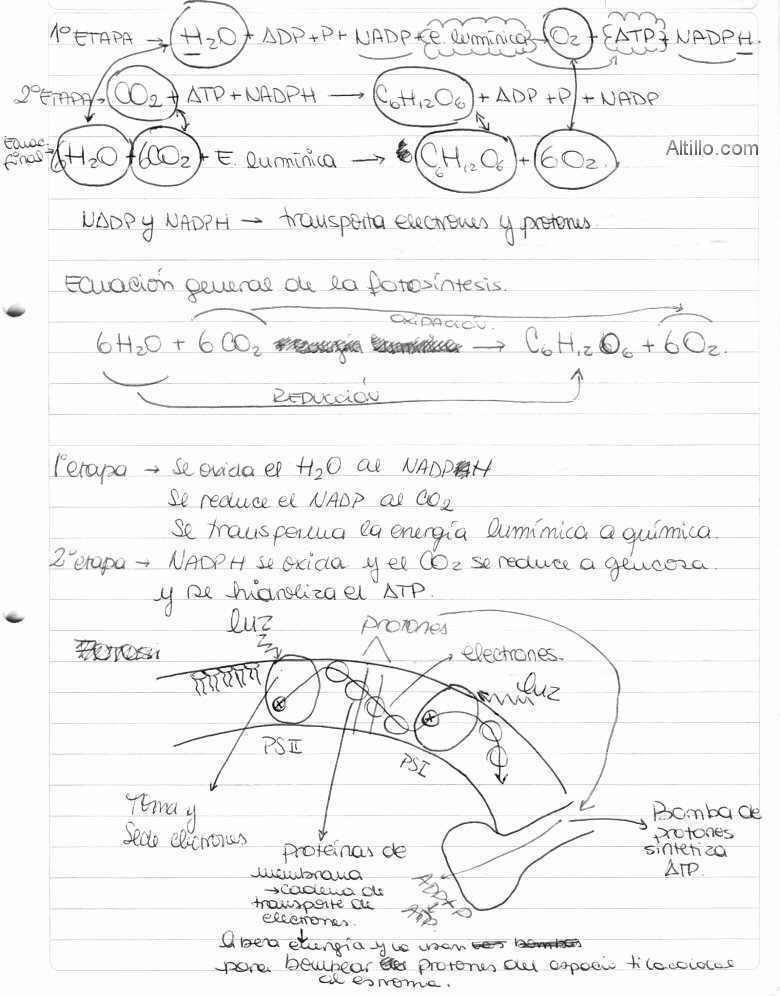 1º ETAPA → H₂O + ADP + P + NADP + E. lumínica → O₂ + ATP + NADPH.
2º ETAPA → CO₂ + ATP + NADPH → C₆H₁₂O₆ + ADP + P + NADP
Ecuac. final → 6H₂O + 6CO₂ + E. lumínica → C₆H₁₂O₆ + 6O₂.
Altillo.com
NADP y NADPH → transporta electrones y protones.
Ecuación general de la fotosíntesis.
OXIDACIÓN.
6H₂O + 6CO₂ → C₆H₁₂O₆ + 6O₂.
REDUCCIÓN
1º etapa → Se oxida el H₂O al NADPH
Se reduce el NADP al CO₂
Se transforma la energía lumímica a química.
2º etapa → NADPH se oxida y el CO₂ se reduce a glucosa.
y se hidroliza el ATP.
luz
protones
electrones.
luz
PSII
PSI
Toma y
Sede electrones
proteínas de
membrana
→ cadena de
transporte de
electrones.
ADP + P
ATP
Bomba de
protones
sintetiza
ATP.
libera energía y la usan
para bombear protones del espacio tilacoidal
al estroma.